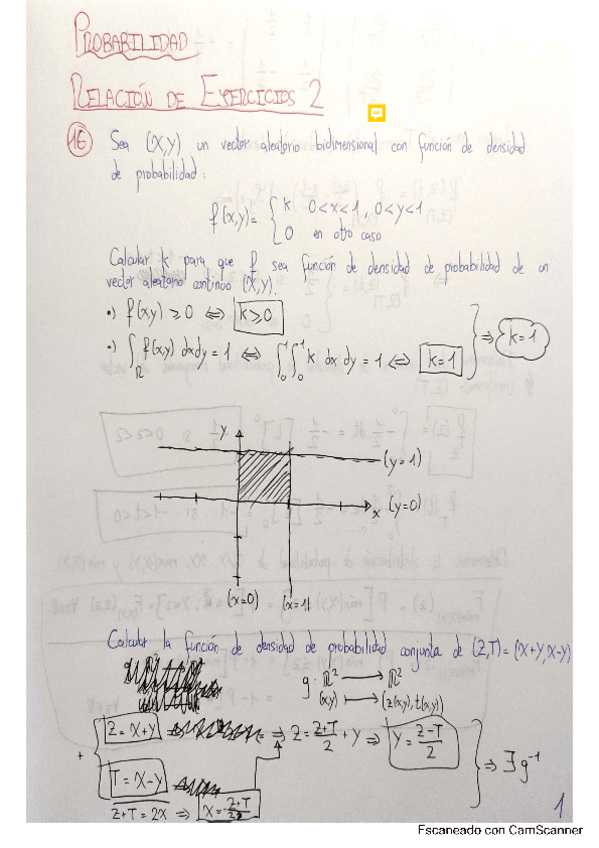 PROBABILIDAD
RELACIÓN DE EJERCICIOS 2
16 Sea (X,Y) un vector aleatorio bidimensional con función de densidad
de probabilidad:
f(x,y)= { k 0<x<1, 0<y<1
0 en otro caso
Calcular k para que f sea función de densidad de probabilidad de un
vector aleatorio continuo (X,Y).
•) f(x,y) ⩾ 0 ⇔ k⩾0
•) ∫ℝ² f(x,y) dxdy = 1 ⇔ ∫₀¹∫₀¹ k dx dy = 1 ⇔ k=1 } ⇒ k=1
y
(y=1)
x (y=0)
(x=0) (x=1)
Calcular la función de densidad de probabilidad conjunta de (Z,T)=(X+Y,X-Y)
g: ℝ² → ℝ²
(x,y) ↦ (z(x,y),t(x,y))
Z=X+Y ⇒ Z= Z+T/2 + Y ⇒ Y= Z-T/2
+ T=X-Y } ⇒ ∃ g⁻¹
Z+T = 2X ⇒ X= Z+T/2
1
Escaneado con CamScanner